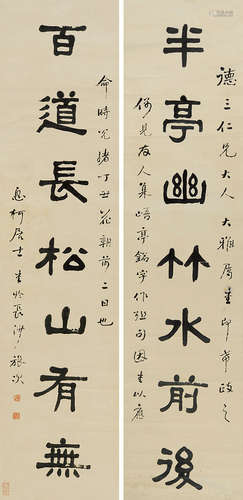 德三仁兄大人大雅屬書即希政之
半亭幽竹水前後
偶見友人集峿亭銘字作聯句因書以應
命時光緒丁丑花朝前二日也
百道長松山有無
息柯居士書於長沙旅次